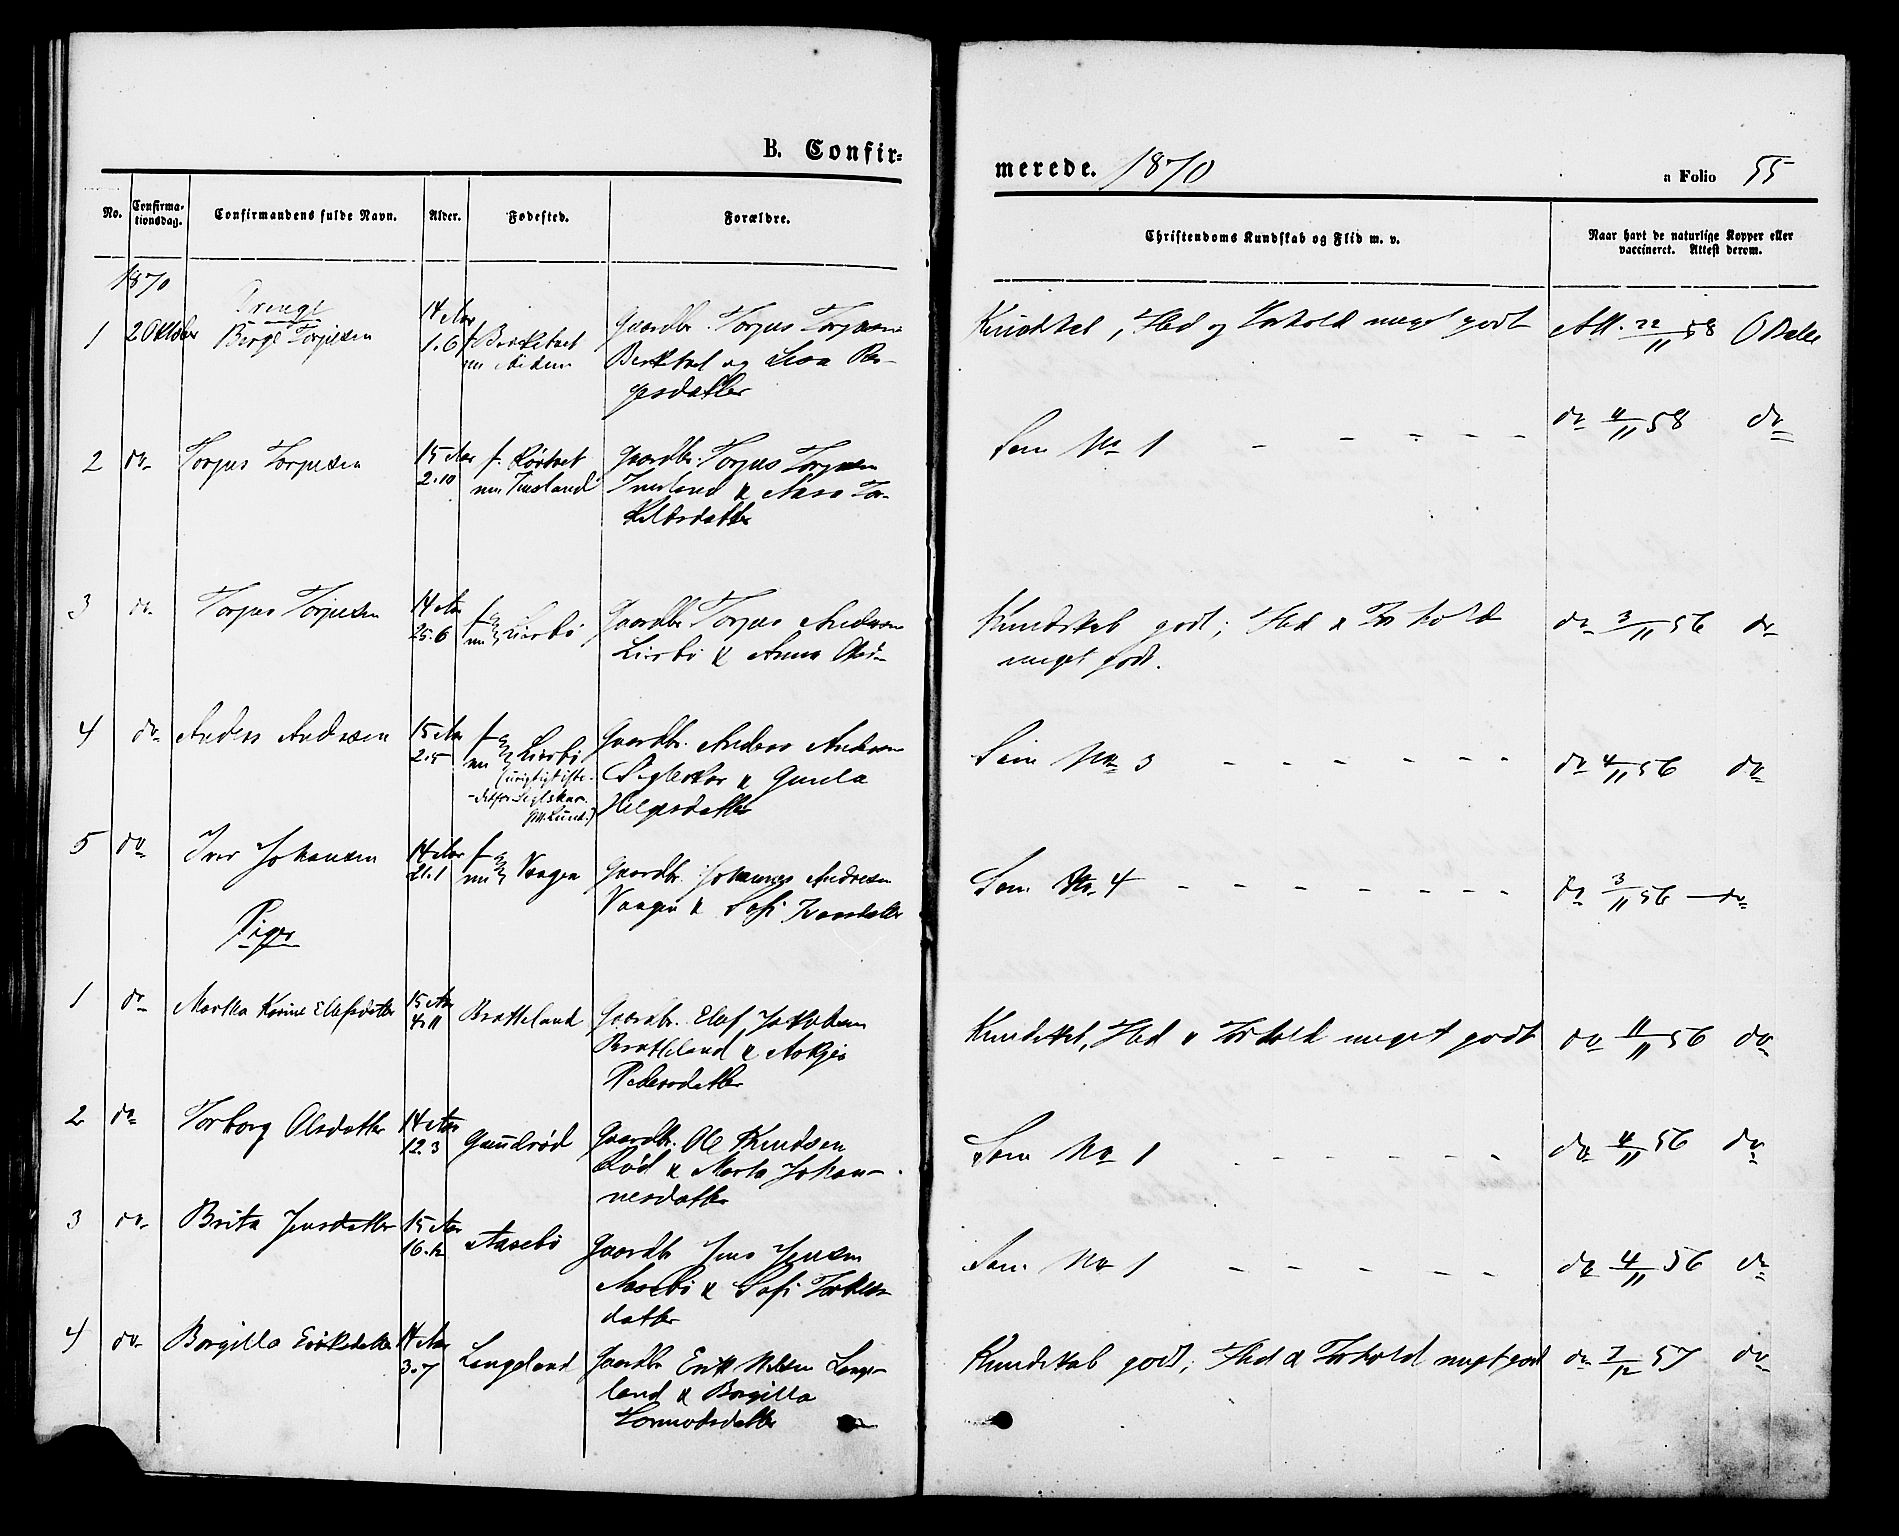 B. Confir=
merede. 1870
a Folio 55
No.
Confirma-
tionsdag.
Confirmandens fulde Navn.
Alder.
Fødested.
Forældre.
Christendoms Kundskab og Flid m. v.
Naar havt de naturlige Kopper eller
vaccineret. Attest derom.
1870
Drenge
1 2 Oktober Berge Torjusen 14 Aar 1.6 Gaardbr. Torjus Torjusen
og
gesdatter
Flid og Forhold meget godt Att. 22/11 58
2 do Torjus Torjusen 15 Aar 2.10 f. nu Gaardbr. Torjus Torjusen
& Aasa Tor-
kildsdatter
Som No 1 - - - - - do 4/11 58 do
3 do Torjus Torjusen 14 Aar 25.6 f. & nu Liarbø Gaardbr Torjus Andersen
Liarbø & Anna
Kundskab godt; Flid & Forhold do 3/11 56 do
meget godt.
4 do Anders Andersen 15 Aar 2.5 f. & nu Liarbø Gaardbr. Anders Andersen
& Gunla
Helgesdatter
Som No 3 - - - - - - do 4/11 56 do
5 do Iver Johansen 14 Aar 21.1 f. & nu Vaagen Gaardbr. Johannes Andresen
Vaagen & Sofi Iversdatter
Som No. 4 - - - - - - - - do 3/11 56 - do
Piger
1 do Martha Karine Elefsdatter 15 Aar 4.11 Bratteland Gaardbr. Elef Jakobsen
Bratteland & Askjer
Pedersdatter
Kundskab, Flid & Forhold meget godt do 11/11 56 do
2 do Torborg Olsdatter 14 Aar 12.3 Gunndrød Gaardbr. Ole Knudsen
Rød & Marta Johan-
nesdatter
Som No 1 - - - - - - do 4/11 56 do
3 do Brita Jensdatter 15 Aar 16.12 Aasebø Gaardbr Jens Jensen
Aasebø & Sofi
datter
Som No 1 - - - - - - do 4/11 56 do
4 do Borgilla Eriksdatter 14 Aar 3.7 Langeland Gaardbr Erik Nilsen Lange-
land & Borgilla
Tormodsdatter
Kundskab godt; Flid & Forhold meget godt do 7/12 57 do